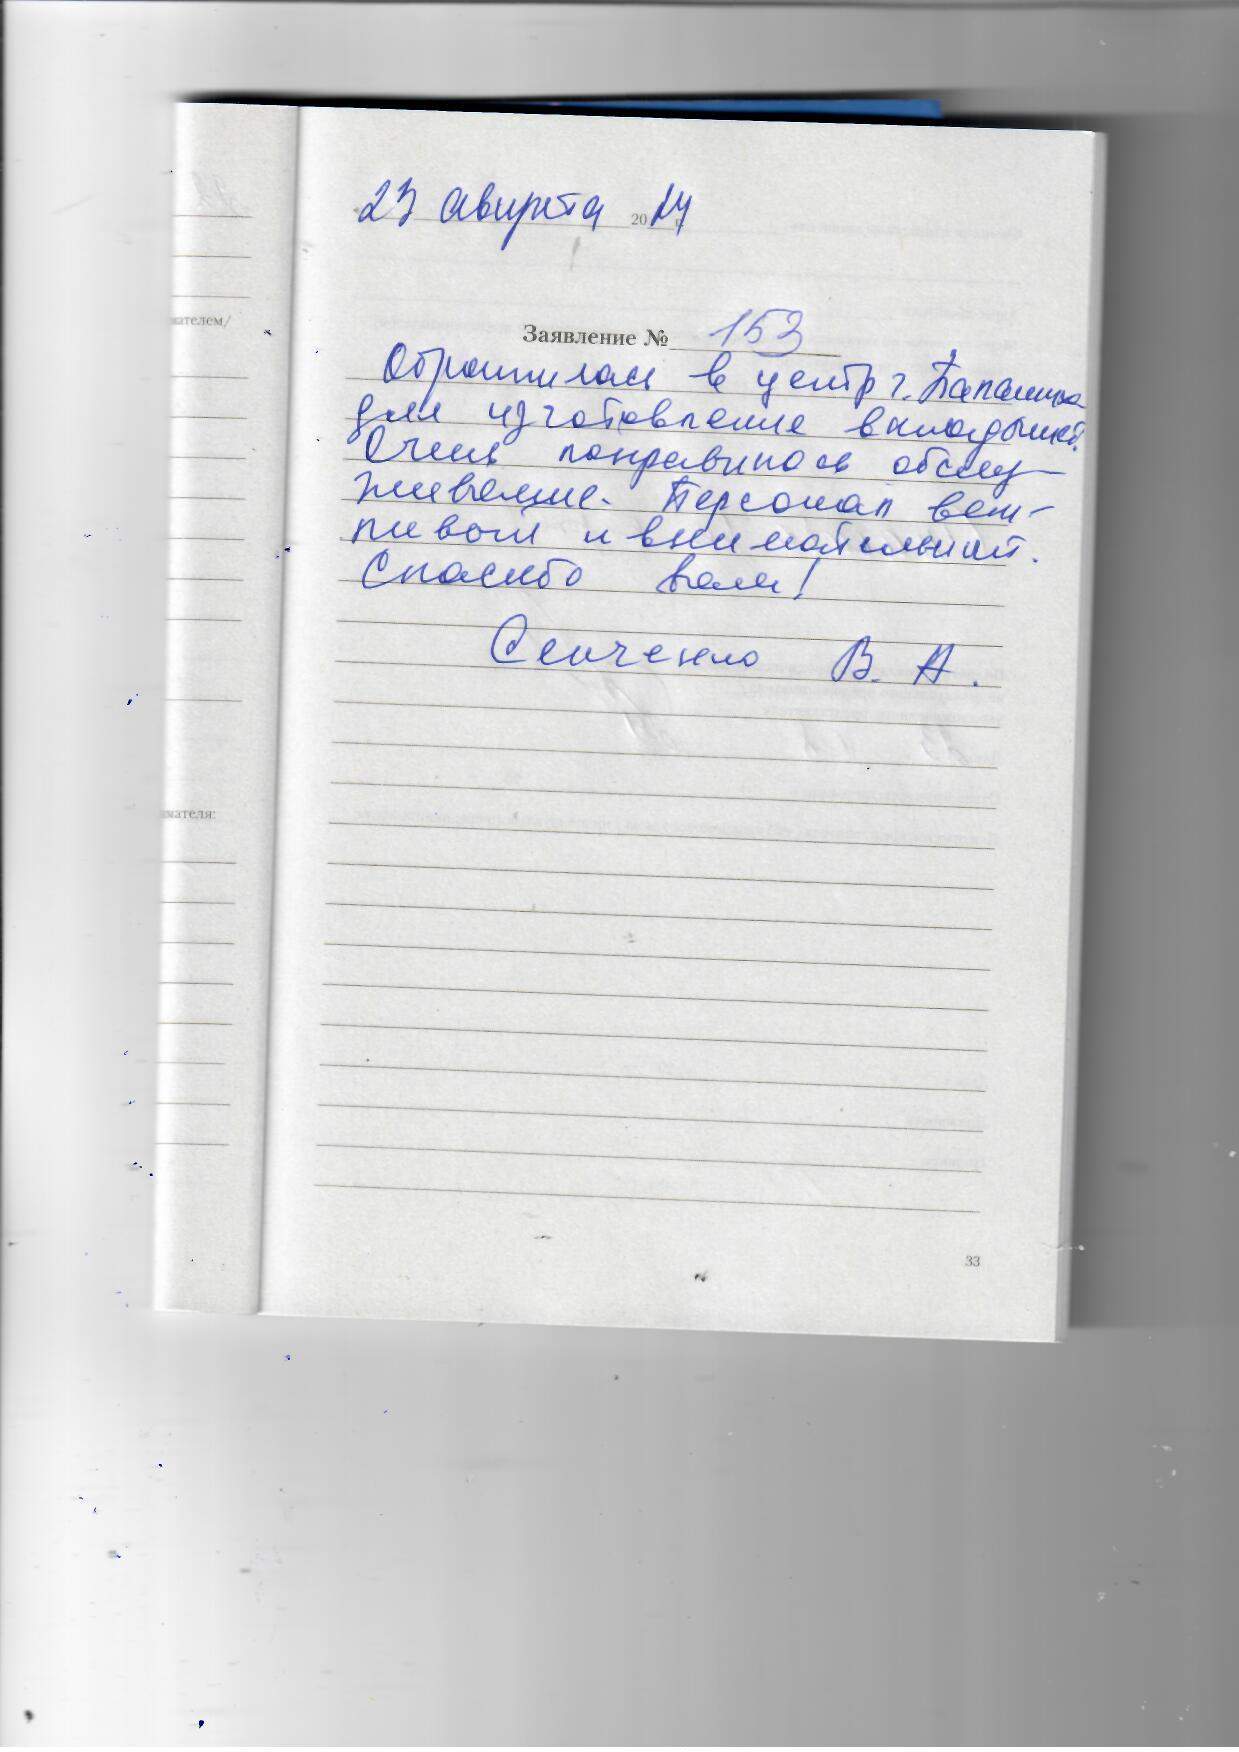 23 августа 2014 г.
ателем/
Заявление № 153
Обратилась в центр г.
для изготовление вкладышей.
Очень понравилось обслу-
живание. Персонал веж-
ливый и внимательный.
Спасибо вам!
Сенченко В. А.
мателя:
33